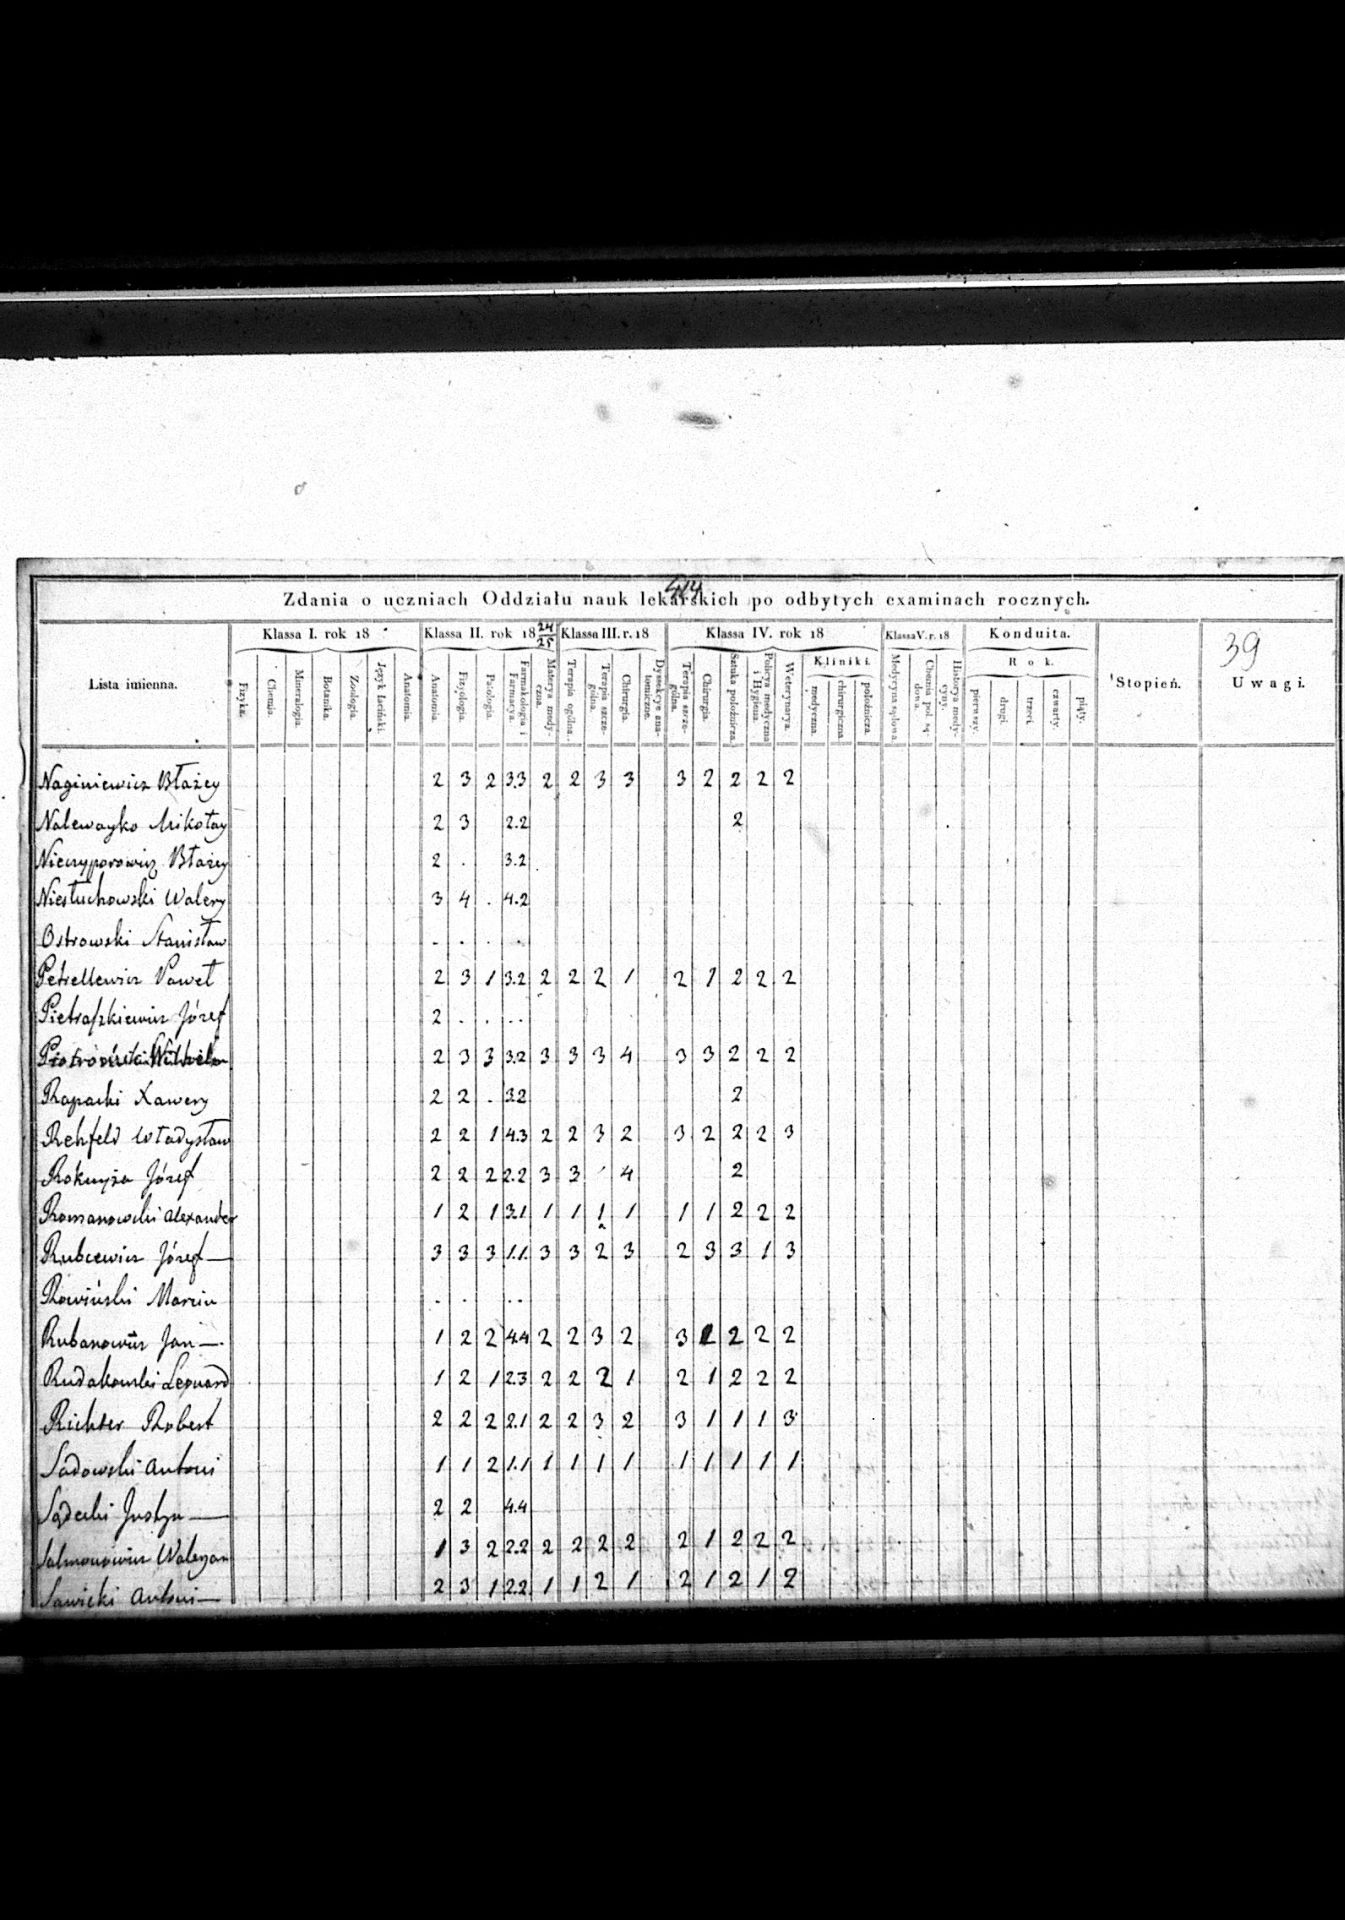 414
Zdania o uczniach Oddziału nauk lekarskich po odbytych examinach rocznych.
39
Lista imienna.
Klassa I. rok 18
Klassa II. rok 18 24/25
Klassa III. r. 18
Klassa IV. rok 18
Klassa V. r. 18
Konduita.
Stopień.
Uwagi.
Kliniki.
Rok.
Fizyka. Chemia. Mineralogia. Botanika. Zoologia. Język łaciński. Anatomia.
Anatomia. Fizjologia. Patologia. Farmakologia i Farmacya. Materya medyczna.
Terapia ogólna. Terapia szczególna. Chirurgia. Dyssekcye anatomiczne.
Terapia szczególna. Chirurgia. Sztuka położnicza. Policya medyczna i Hygiena. Weterynarya. medyczna. chirurgiczna położnicza.
Medycyna sądowa. Chemia pol. sądowa. Historya medycyny.
pierwszy. drugi. trzeci. czwarty. piąty.
Naginiewicz Błażey 2 3 2 3.3 2 2 3 3 3 2 2 2 2
Nalewayko Mikołay 2 3 2.2 2
Niczyporowicz Błażey 2 . 3.2
Niesłuchowski Walery 3 4 . 4.2
Ostrowski Stanisław . . . . .
Petrellewicz Paweł 2 3 1 3.2 2 2 2 1 2 1 2 2 2
Pietraszkiewicz Józef 2 . . . .
2 3 3 3.2 3 3 3 4 3 3 2 2 2
Rapacki Xawery 2 2 . 3.2 2
Rehfeld Władysław 2 2 1 4.3 2 2 3 2 3 2 2 2 3
Józef 2 2 2 2.2 3 3 4 2
Romanowski Alexander 1 2 1 3.1 1 1 1 1 1 1 2 2 2
Rubcewicz Józef 3 3 3 1.1 3 3 2 3 2 3 3 1 3
Rowiński Marcin . . . .
Rubanowicz Jan 1 2 2 4.4 2 2 3 2 3 2 2 2
Rudakowski Leonard 1 2 1 2.3 2 2 2 1 2 1 2 2 2
Richter Robert 2 2 2 2.1 2 2 3 2 3 1 1 1 3
Sadowski Antoni 1 1 2 1.1 1 1 1 1 1 1 1 1 1
Sądecki Justyn 2 2 4.4
Salmonowicz Waleryan 1 3 2 2.2 2 2 2 2 2 1 2 2 2
Sawicki Antoni 2 3 1 2.2 1 1 2 1 2 1 2 1 2